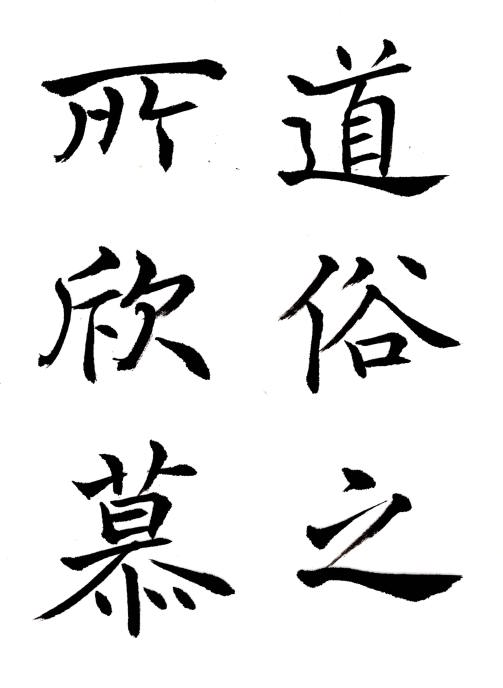 道俗之
所欣慕